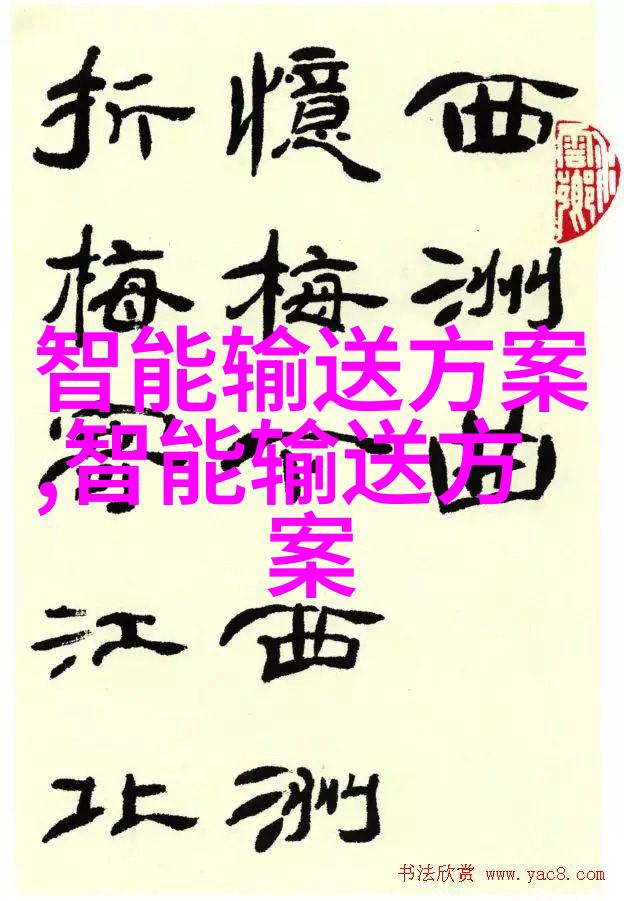 西洲曲
憶梅下西洲
折梅寄江北
智能输送方案
,智能输送方
案
书法欣赏 www.yac8.com